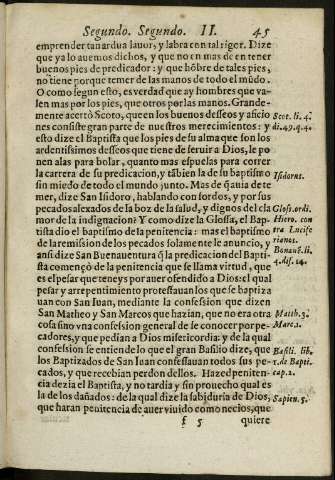 Segundo. Segundo. II. 45
emprender tan ardua lauor, y labra con tal rigor. Dize
que ya lo auemos dichos, y que no en mas de en tener
buenos pies de predicador: y que hõbre de tales pies,
no tiene porque temer de las manos de todo el mũdo.
O como segun esto, es verdad que ay hombres que va-
len mas por los pies, que otros por las manos. Grande-
mente acertò Scoto, queen los buenos desseos y afecio
nes consiste gran parte de nuestros merecimientos: y
esto dize el Baptista que los pies de su alma que son los
ardentissimos desseos que tiene de seruir a Dios, le po
nen alas para bolar, quanto mas espuelas para correr
la carrera de su predicacion, y tãbien la de su baptismo
sin miedo de todo el mundo junto. Mas de q̃ auia de te
mer, dize San Isidoro, hablando con sordos, y por sus
pecados alexados de la boz de la salud, y dignos del cla
mor de la indignacion? Y como dize la Glossa, el Bap-
tista dio el baptismo de la penitencia: mas el baptismo
de la remission de los pecados solamente le anuncio, y
ansi dize San Buenauentura q̃ la predicacion del Bapti-
sta començò de la penitencia que se llama virtud, que
es el pesar que teneys por auer ofendido a Dios: el qual
pesar y arrepentimiento protestauan los que se baptiza
uan con San Iuan, mediante la confession que dizen
San Matheo y San Marcos que hazian, que no era otra
cosa sino vna confession general de se conocer por pe-
cadores, y que pedian a Dios misericordia: y de la qual
confession se entien de lo que el gran Basilio dize, que
los Baptizados de San Iuan confessauan todos sus pe-
cados, y que recebian perdon dellos. Hazed peniten-
cia dezia el Baptista, y no tardia y sin prouecho qual es
la de los dañados: de la qual dize la sabiduria de Dios,
que haran penitencia de auer viuido como necios, que
f 5 quiere
Scot. li. 4.
di. 49. q. 4.
Isidorus.
Gloss. ordi.
Hiero. con
tra Lucife
rianos.
Bonau. li.
4. dis. 14.
Matth. 3.
Marc. 1.
Basili. lib.
1. de Bapti.
cap. 2.
Sapien. 5.